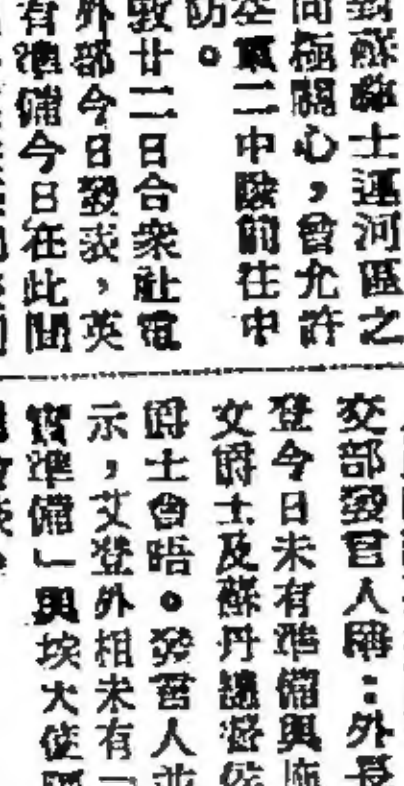 對蘇彝士運河區之
向極關心，曾允許
空軍二中隊前往中
防。
敦廿二日合衆社電
外部今日發表，英
有準備今日在此間
交部發言人稱：外長
登今日未有準備與
文爵士及蘇丹總督侯
爵士會晤。發言人並
示，艾登外相未有「
實準備」與埃大使